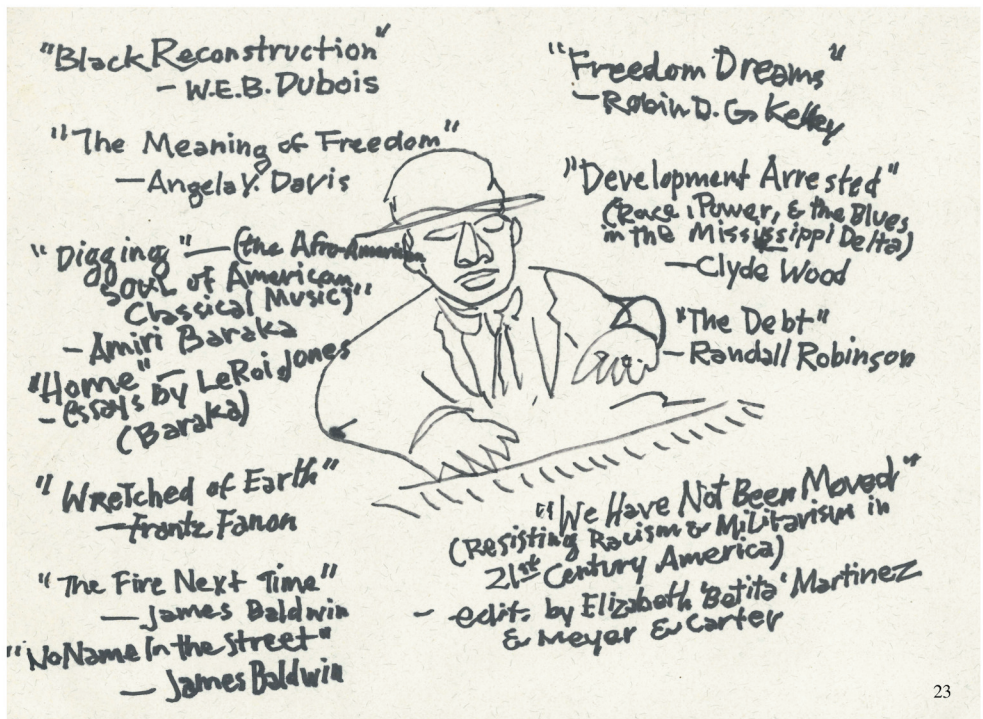 "Black Reconstruction"
- W.E.B. Dubois
"The Meaning of Freedom"
— Angela Y. Davis
"Digging" — (the Afro-American
Soul of American
Classical Music)"
- Amiri Baraka
"Home" —
- essays by LeRoi Jones
(Baraka)
"Wretched of Earth"
— Frantz Fanon
"The Fire Next Time"
— James Baldwin
"No Name In the Street"
— James Baldwin
"Freedom Dreams"
- Robin D. G. Kelley
"Development Arrested"
(Race, Power, & the Blues
in the Mississippi Delta)
— Clyde Wood
"The Debt"
- Randall Robinson
"We Have Not Been Moved"
(Resisting Racism & Militarism in
21st Century America)
- edit. by Elizabeth 'Betita' Martinez
& Meyer & Carter
23